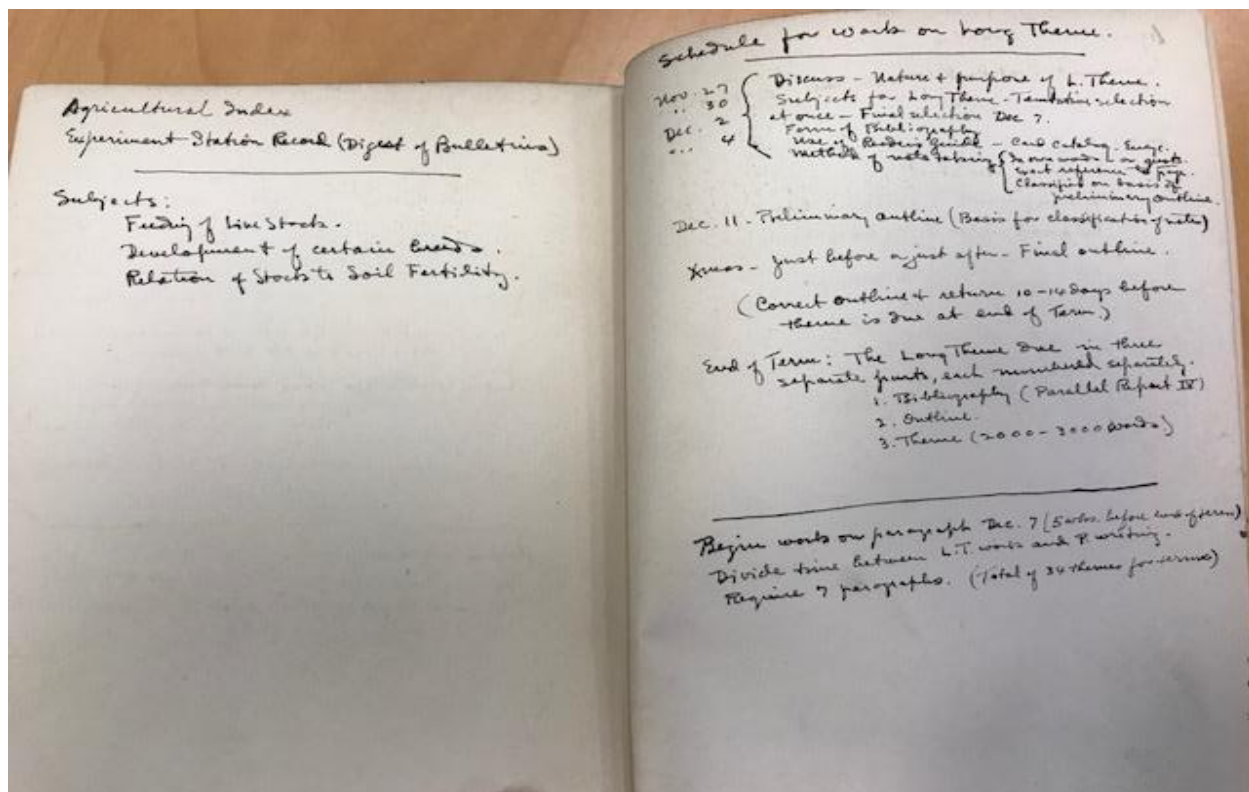 Agricultural Index
Experiment Station Record (Digest of Bulletins)
Subjects:
Feeding of Live Stock.
Development of certain breeds.
Relation of Stock to Soil Fertility.
Schedule for Work on Long Theme.
Nov. 27
" 30
Dec. 2
" 4
Discuss - Nature + purpose of L. Theme.
Subjects for Long Theme - Tentative selection
at once - Final selection Dec 7.
Form of Bibliography
Use of Readers Guide - Card Catalog - Encyc.
Methods of note taking
In own words or quots.
Exact reference to page.
Classified on basis of
preliminary outline.
Dec. 11 - Preliminary outline (Basis for classification of notes)
Xmas - Just before or just after - Final outline.
(Correct outline + return 10-14 days before
theme is due at end of Term)
End of Term: The Long Theme due in three
separate parts, each numbered separately.
1. Bibliography (Parallel Report IV)
2. Outline.
3. Theme (2000 - 3000 words)
Begin work on paragraph Dec. 7 (5 wks. before end of term)
Divide time between L.T. work and P. writing.
Require 7 paragraphs. (Total of 34 themes for term)